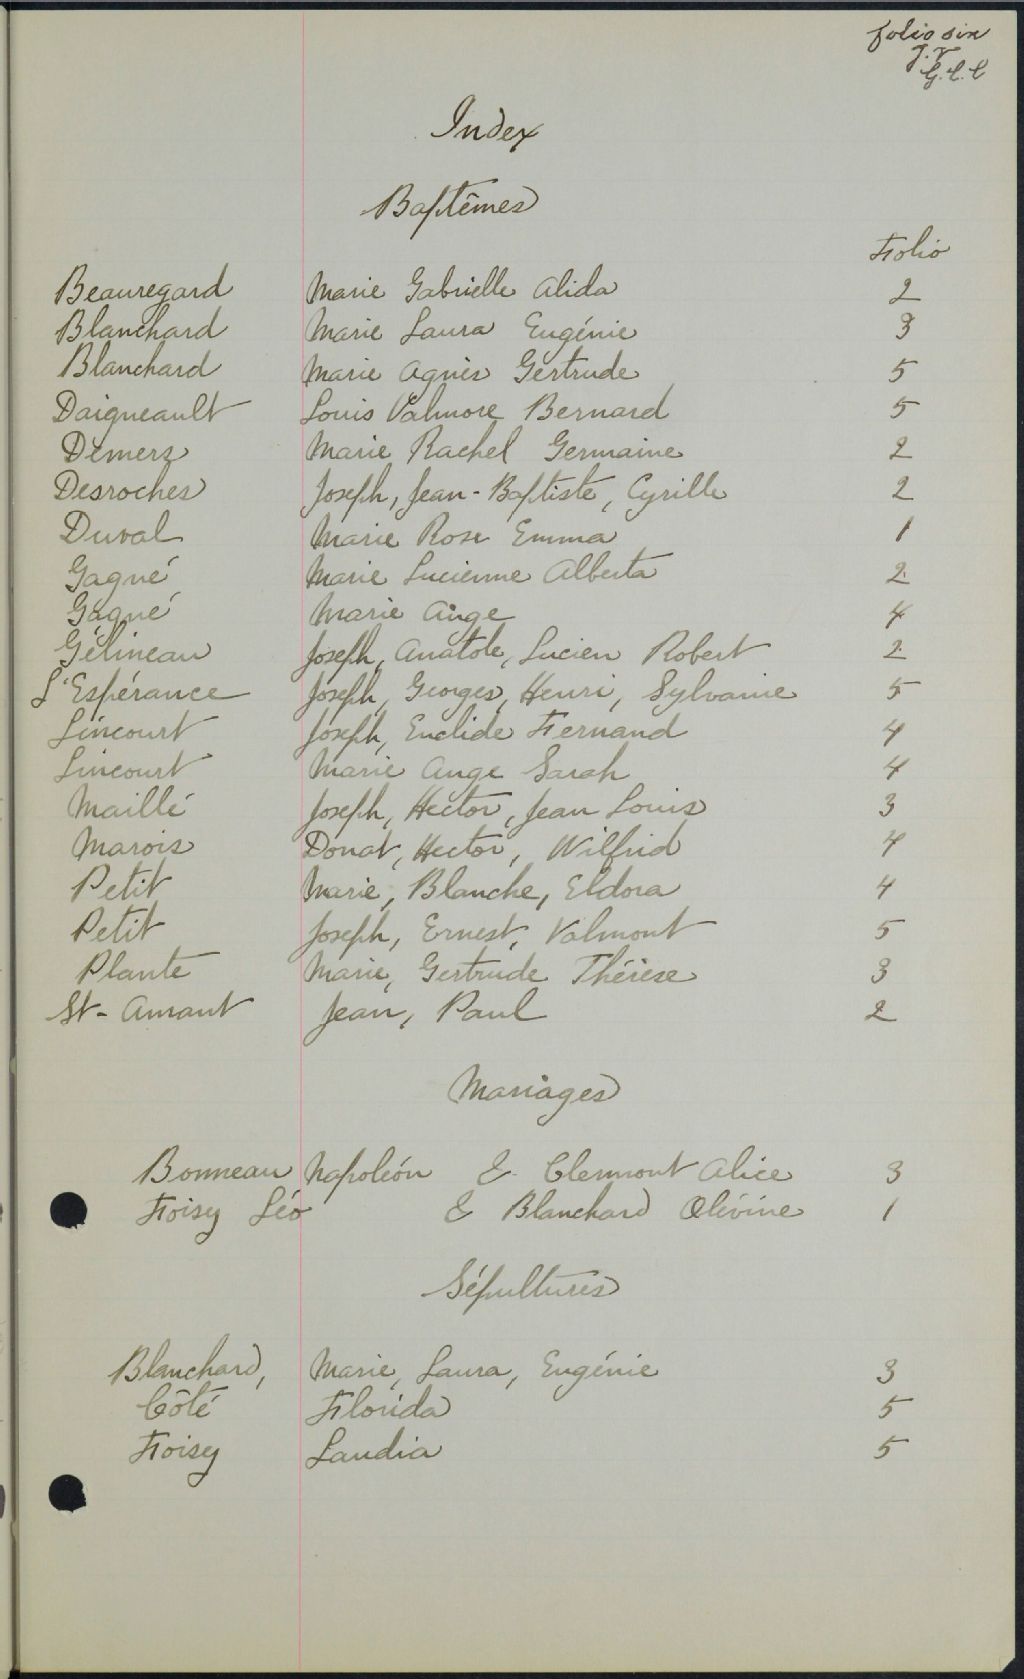 folio six
J. V
G. C. C
Index
Baptêmes
Folio
Beauregard Marie Gabrielle Alida 2
Blanchard Marie Laura Eugénie 3
Blanchard Marie Agnès Gertrude 5
Daigneault Louis Valmore Bernard 5
Demers Marie Rachel Germaine 2
Desroches Joseph, Jean-Baptiste, Cyrille 2
Duval Marie Rose Emma 1
Gagné Marie Lucienne Alberta 2
Gagné Marie Ange 4
Gélineau Joseph, Anatole, Lucien Robert 2
L'Espérance Joseph, Georges, Henri, Sylvanie 5
Lincourt Joseph, Euclide Fernand 4
Lincourt Marie Ange Sarah 4
Maillé Joseph, Hector, Jean Louis 3
Marois Donat, Hector, Wilfrid 4
Petit Marie, Blanche, Eldora 4
Petit Joseph, Ernest, Valmont 5
Plante Marie, Gertrude Thérèse 3
St-Amant Jean, Paul 2
Mariages
Bonneau Napoléon & Clermont Alice 3
Foisy Léo & Blanchard Olévine 1
Sépultures
Blanchard, Marie, Laura, Eugénie 3
Côté Florida 5
Foisy Laudia 5